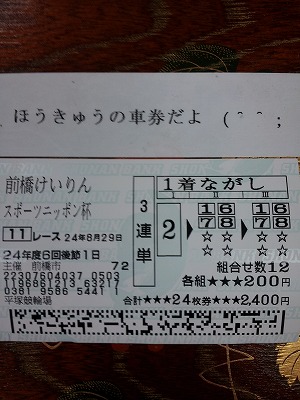 ほうきゅうの車券だよ (^ ^;
前橋けいりん
スポーツニッポン杯
11レース 24年8月29日
24年度6回後節1日
主催 前橋市 72
22307604037 0503
1196861213 63217
0381 9586 5441 1
平塚競輪場
3連単
1着ながし
I II III
2→16→16
78 78
☆☆ ☆☆
☆☆ ☆☆
組合せ数12
各組★★★200円
合計★★★24枚券★★2,400円